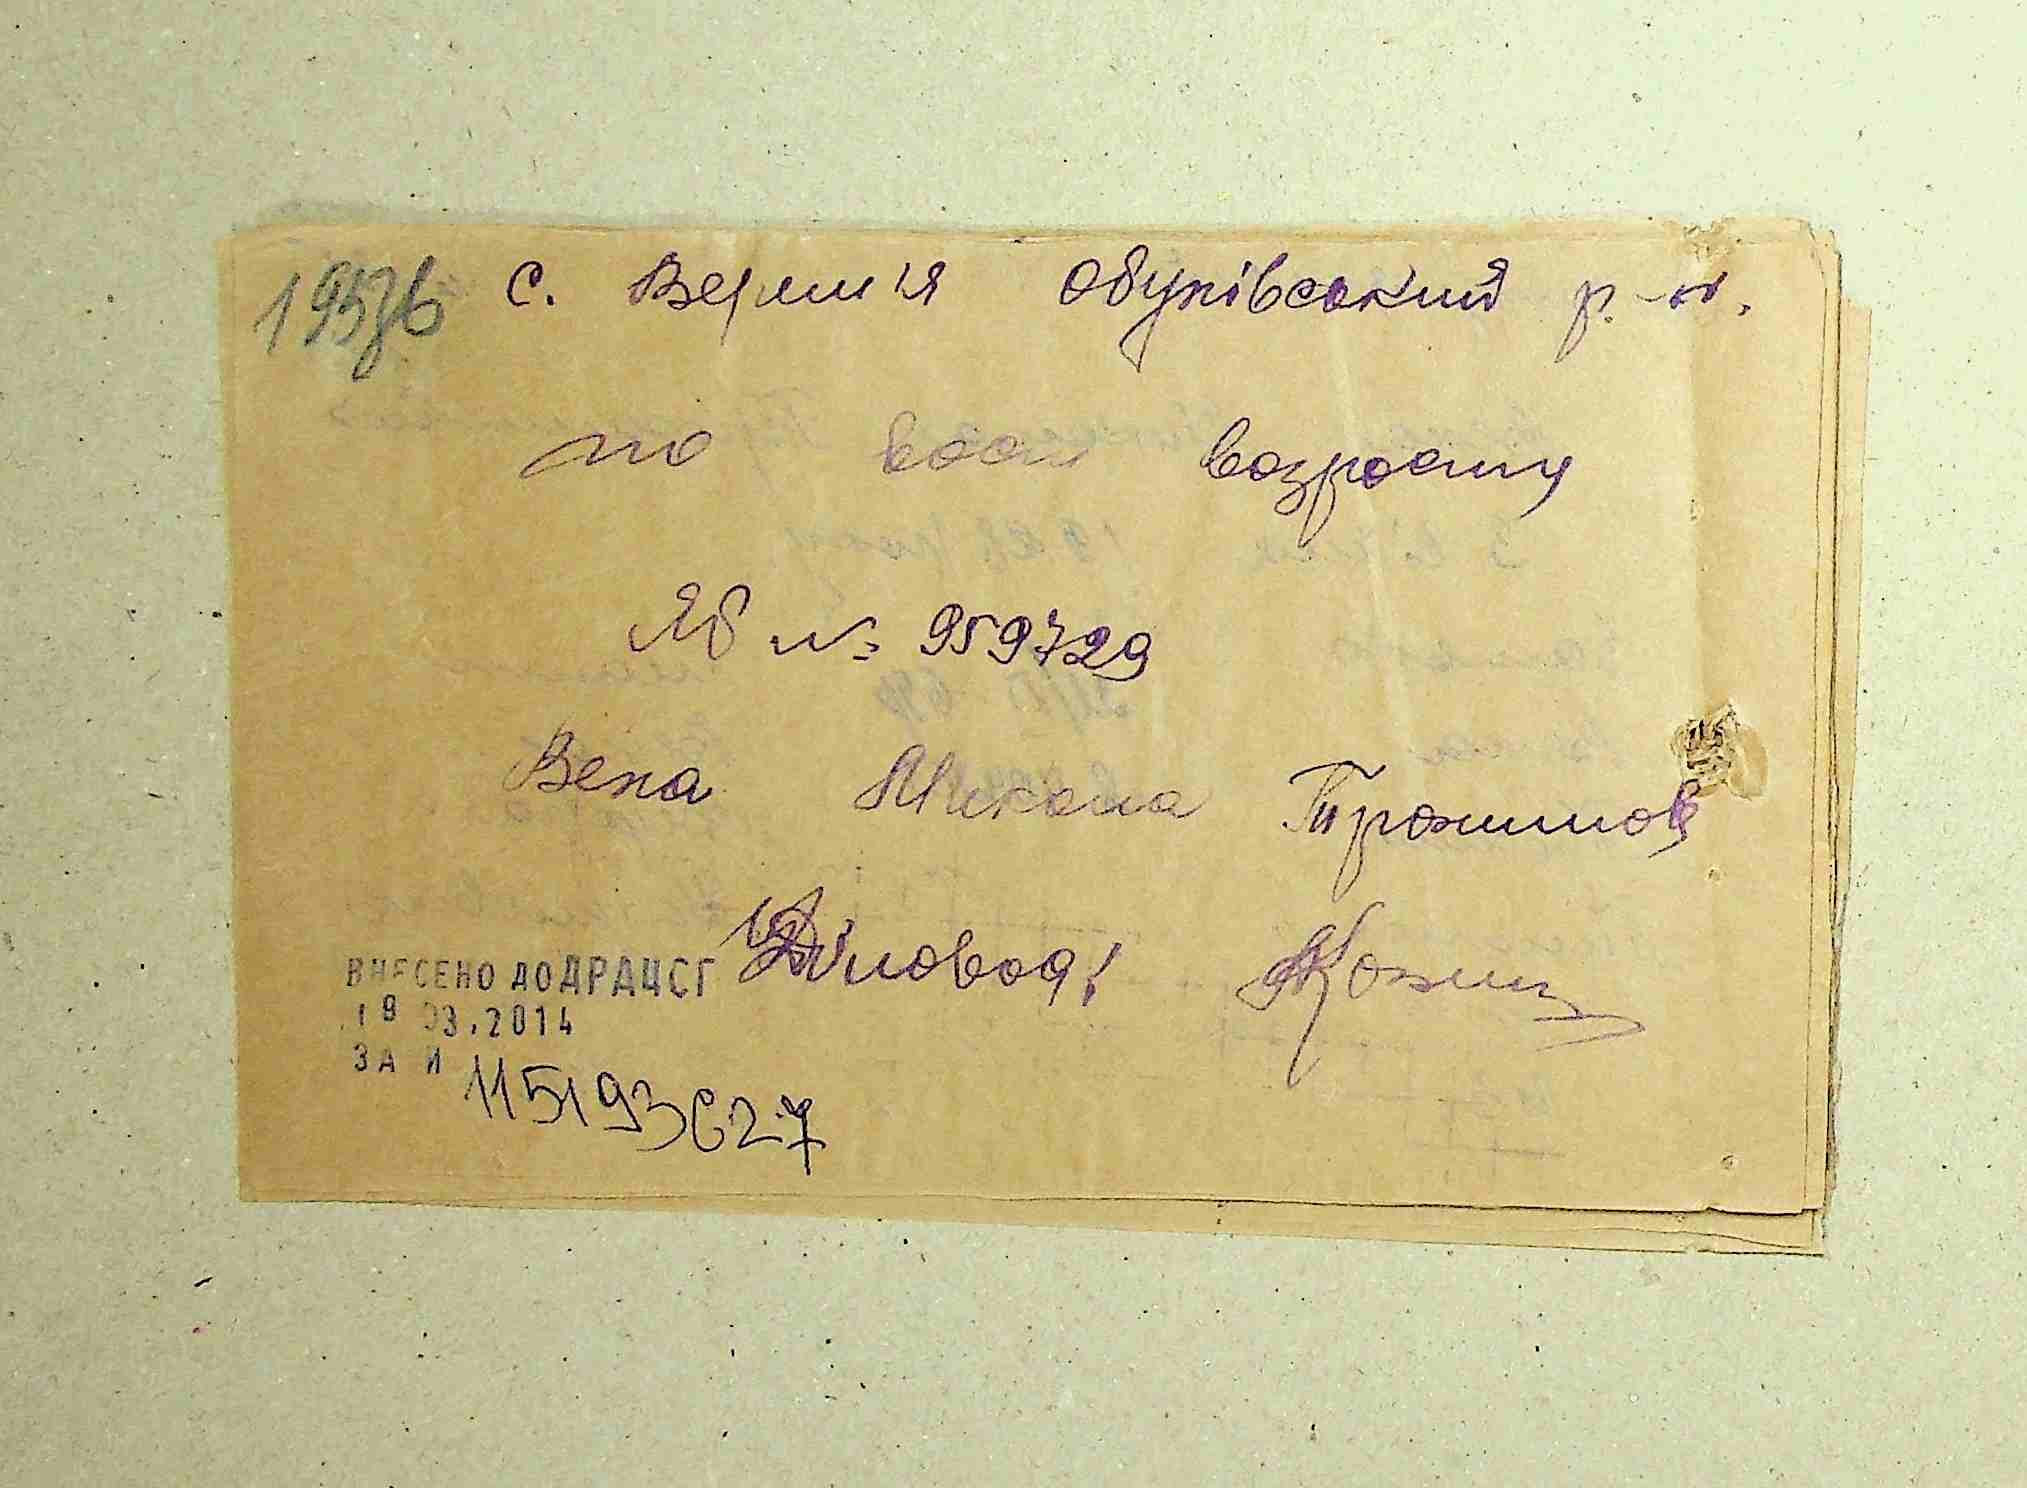 1936 с. Верем'я Обухівський р-н.
по вост возрасту
ЯБ № 959729
Веха Микола Трохимов
Діловод
ВНЕСЕНО ДО ДРАЦСГ
19 03.2014
ЗА И 115193627